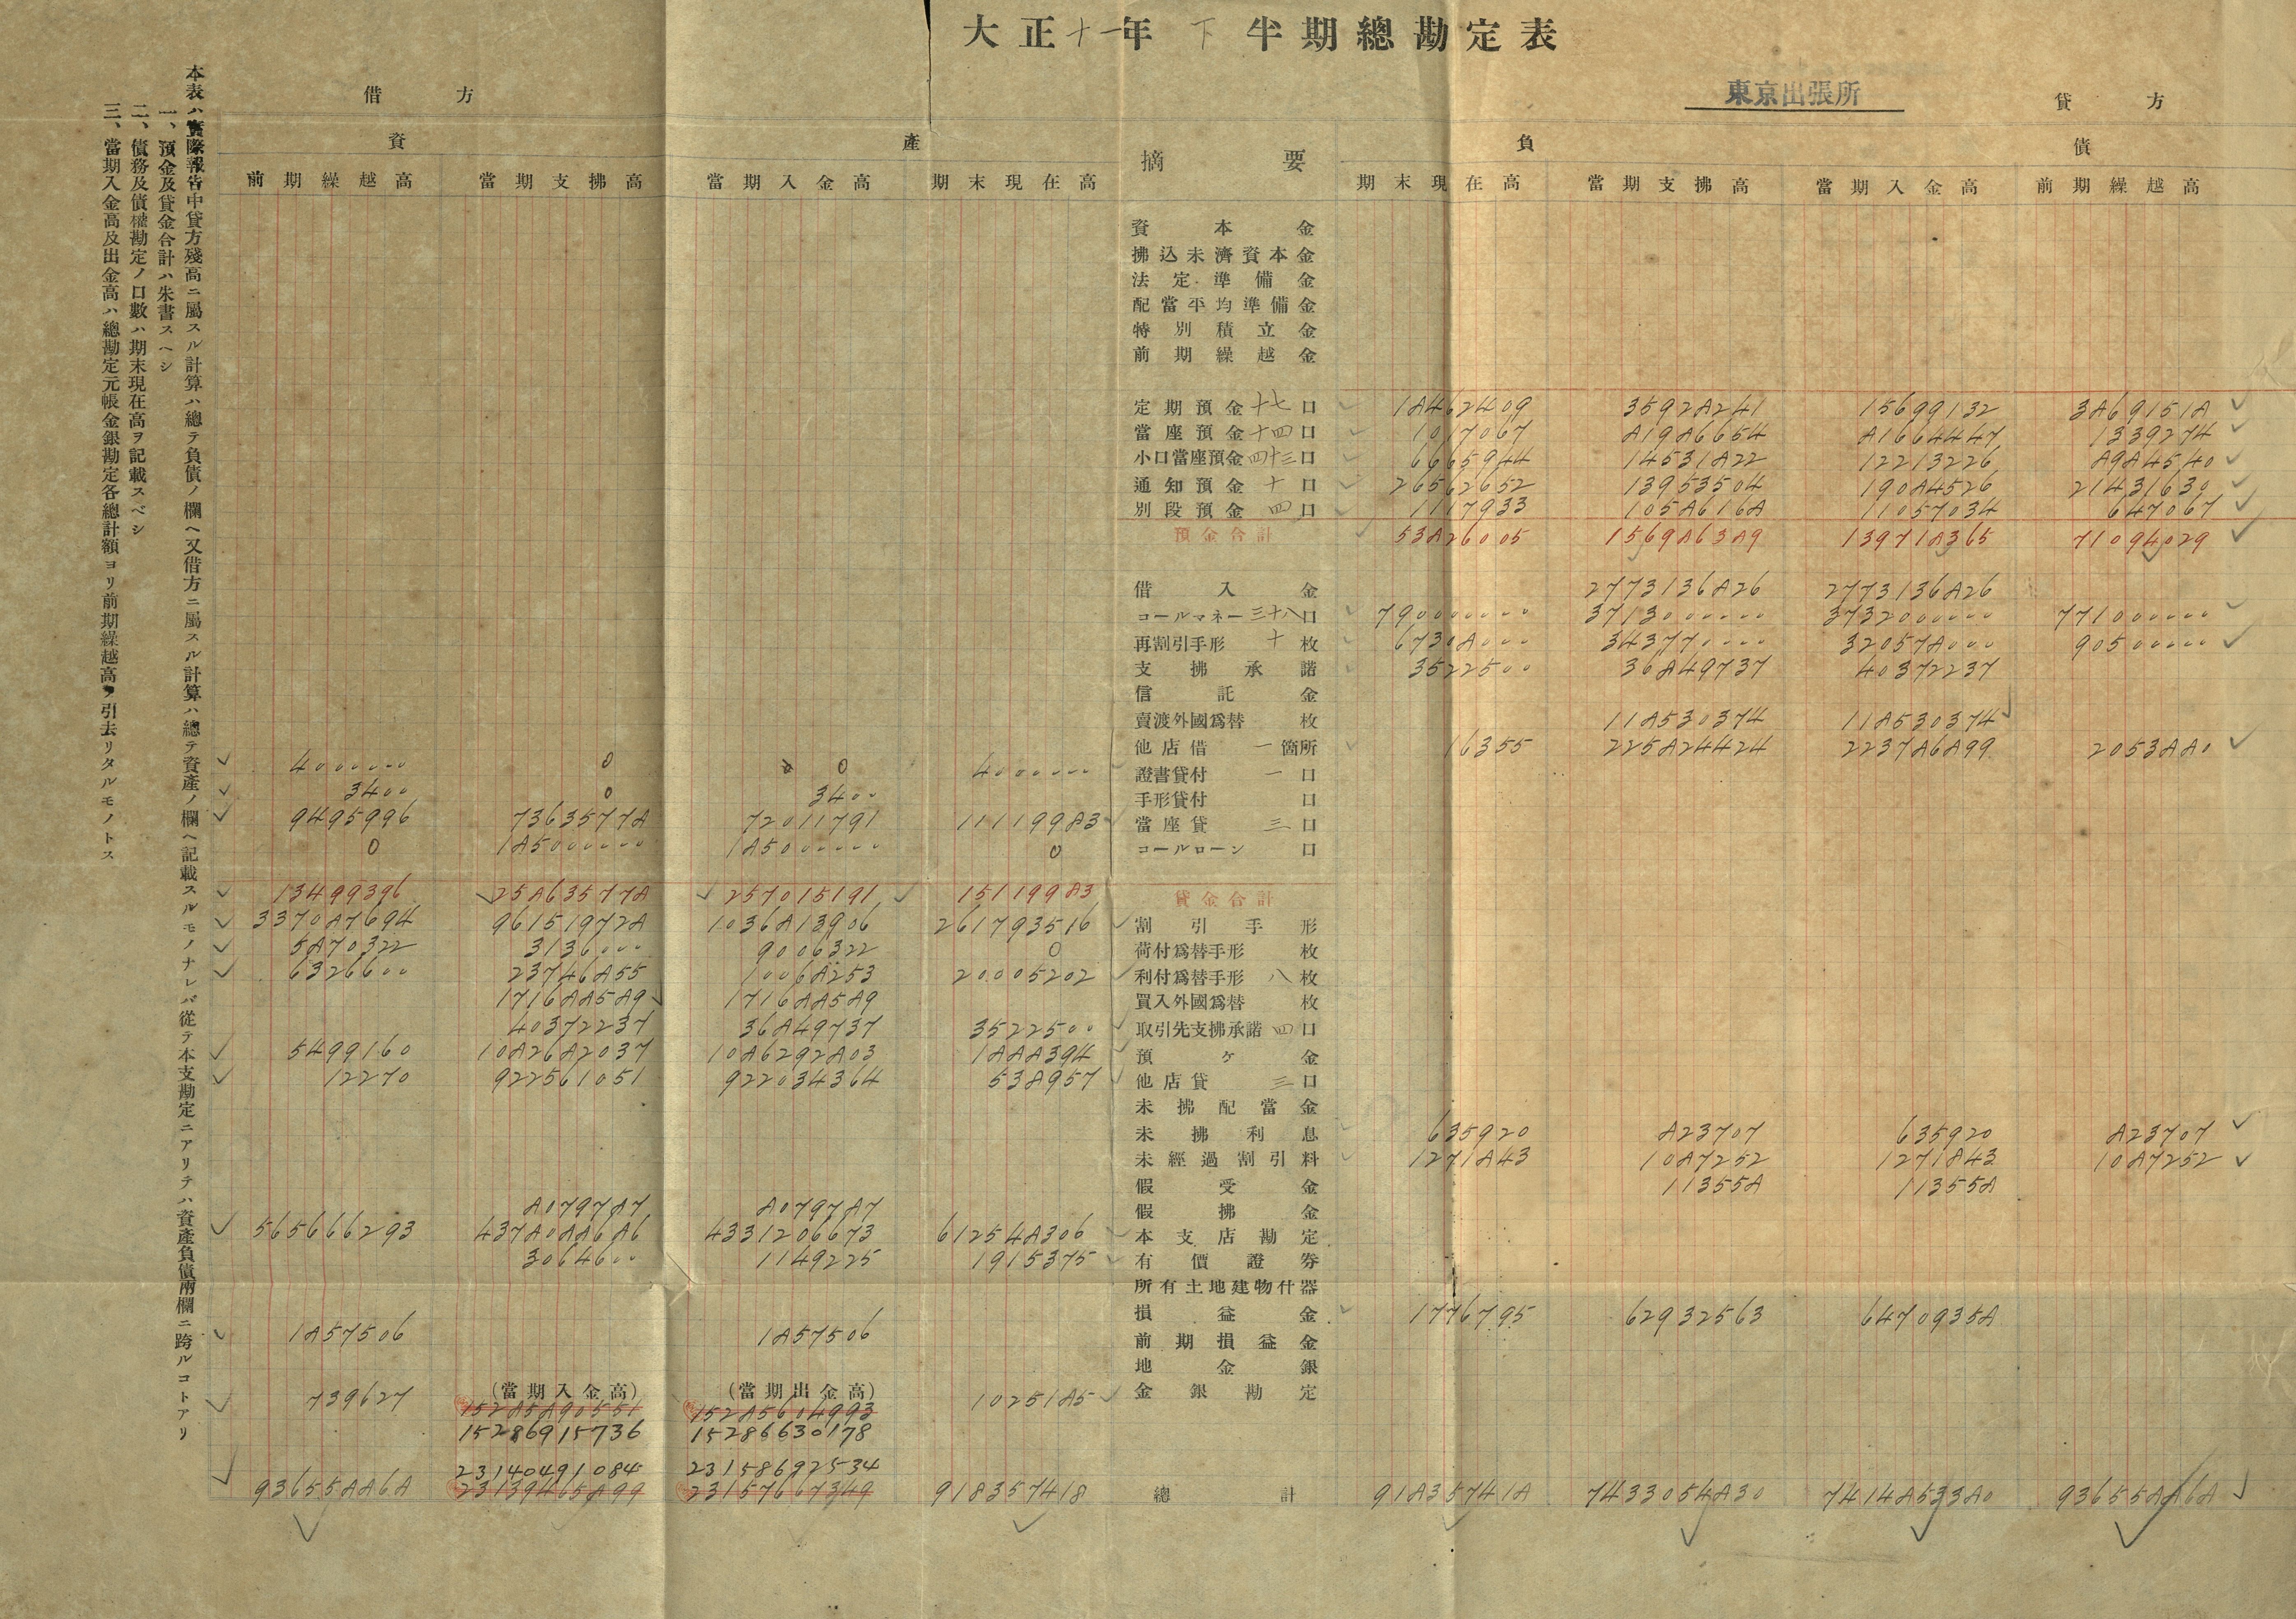 大正十一年下半期總勘定表
東京出張所
借方 貸方
資産 摘要 負債
前期繰越高 當期支拂高 當期入金高 期末現在高 期末現在高 當期支拂高 當期入金高 前期繰越高
資本金
拂込未濟資本金
法定準備金
配當平均準備金
特別積立金
前期繰越金
定期預金十七口 18462409 35928241 15699132 38691518
當座預金十四口 1017067 81986654 81664447 1339274
小口當座預金四十三口 6665944 14531822 12213226 8984540
通知預金十口 26562652 13953504 19084526 21431630
別段預金四口 1117933 10586168 11057034 647067
預金合計 53826005 156986389 139718365 71094029
借入金 2773136826 2773136826
コールマネー三十八口 790000000 3713000000 3732000000 771000000
再割引手形十枚 67308000 343770000 320578000 90500000
支拂承諾 3522500 36849737 40372237
信託金
賣渡外國爲替枚 118530374 118530374
他店借一箇所 16355 225824424 223786899 2053880
4000000 0 0 4000000 證書貸付一口
3400 0 3400 手形貸付口
9495996 73635778 72011791 11119983 當座貸三口
0 185000000 185000000 0 コールローン口
13499396 258635778 257015191 15119983 貸金合計
337087694 961519728 1036813906 261793516 割引手形
5870322 3136000 9006322 0 荷付爲替手形枚
6326600 23746855 10068253 20005202 利付爲替手形八枚
171688589 171688589 買入外國爲替枚
40372237 36849737 3522500 取引先支拂承諾四口
5499160 1082682037 1086292803 1888394 預ケ金
12270 922561051 922034364 538957 他店貸三口
未拂配當金
未拂利息 635920 823707 635920 823707
未經過割引料 1271843 1087252 1271843 1087252
假受金 113558 113558
8079787 8079787 假拂金
565666293 4378088686 4331206673 612548306 本支店勘定
3064600 1149225 1915375 有價證券
所有土地建物什器
損益金 1776795 62932563 64709358
1857506 1857506 前期損益金
地金銀
(當期入金高) (當期出金高)
739627 15285890551 15285604993 1025185 金銀勘定
15286915736 15286630178
23140491084 23158692534
936558868 23139465899 23157667349 918357418 總計 918357418 7433054830 7414853380 936558868
本表ハ實際報告中貸方殘高ニ屬スル計算ハ總テ負債ノ欄ヘ又借方ニ屬スル計算ハ總テ資產ノ欄ヘ記載スルモノナレバ從テ本支勘定ニアリテハ資產負債兩欄ニ跨ルコトアリ
一、預金及貸金合計ハ朱書スヘシ
二、債務及債權勘定ノ口數ハ期末現在高ヲ記載スベシ
三、當期入金高及出金高ハ總勘定元帳金銀勘定各總計額ヨリ前期繰越高ヲ引去リタルモノトス